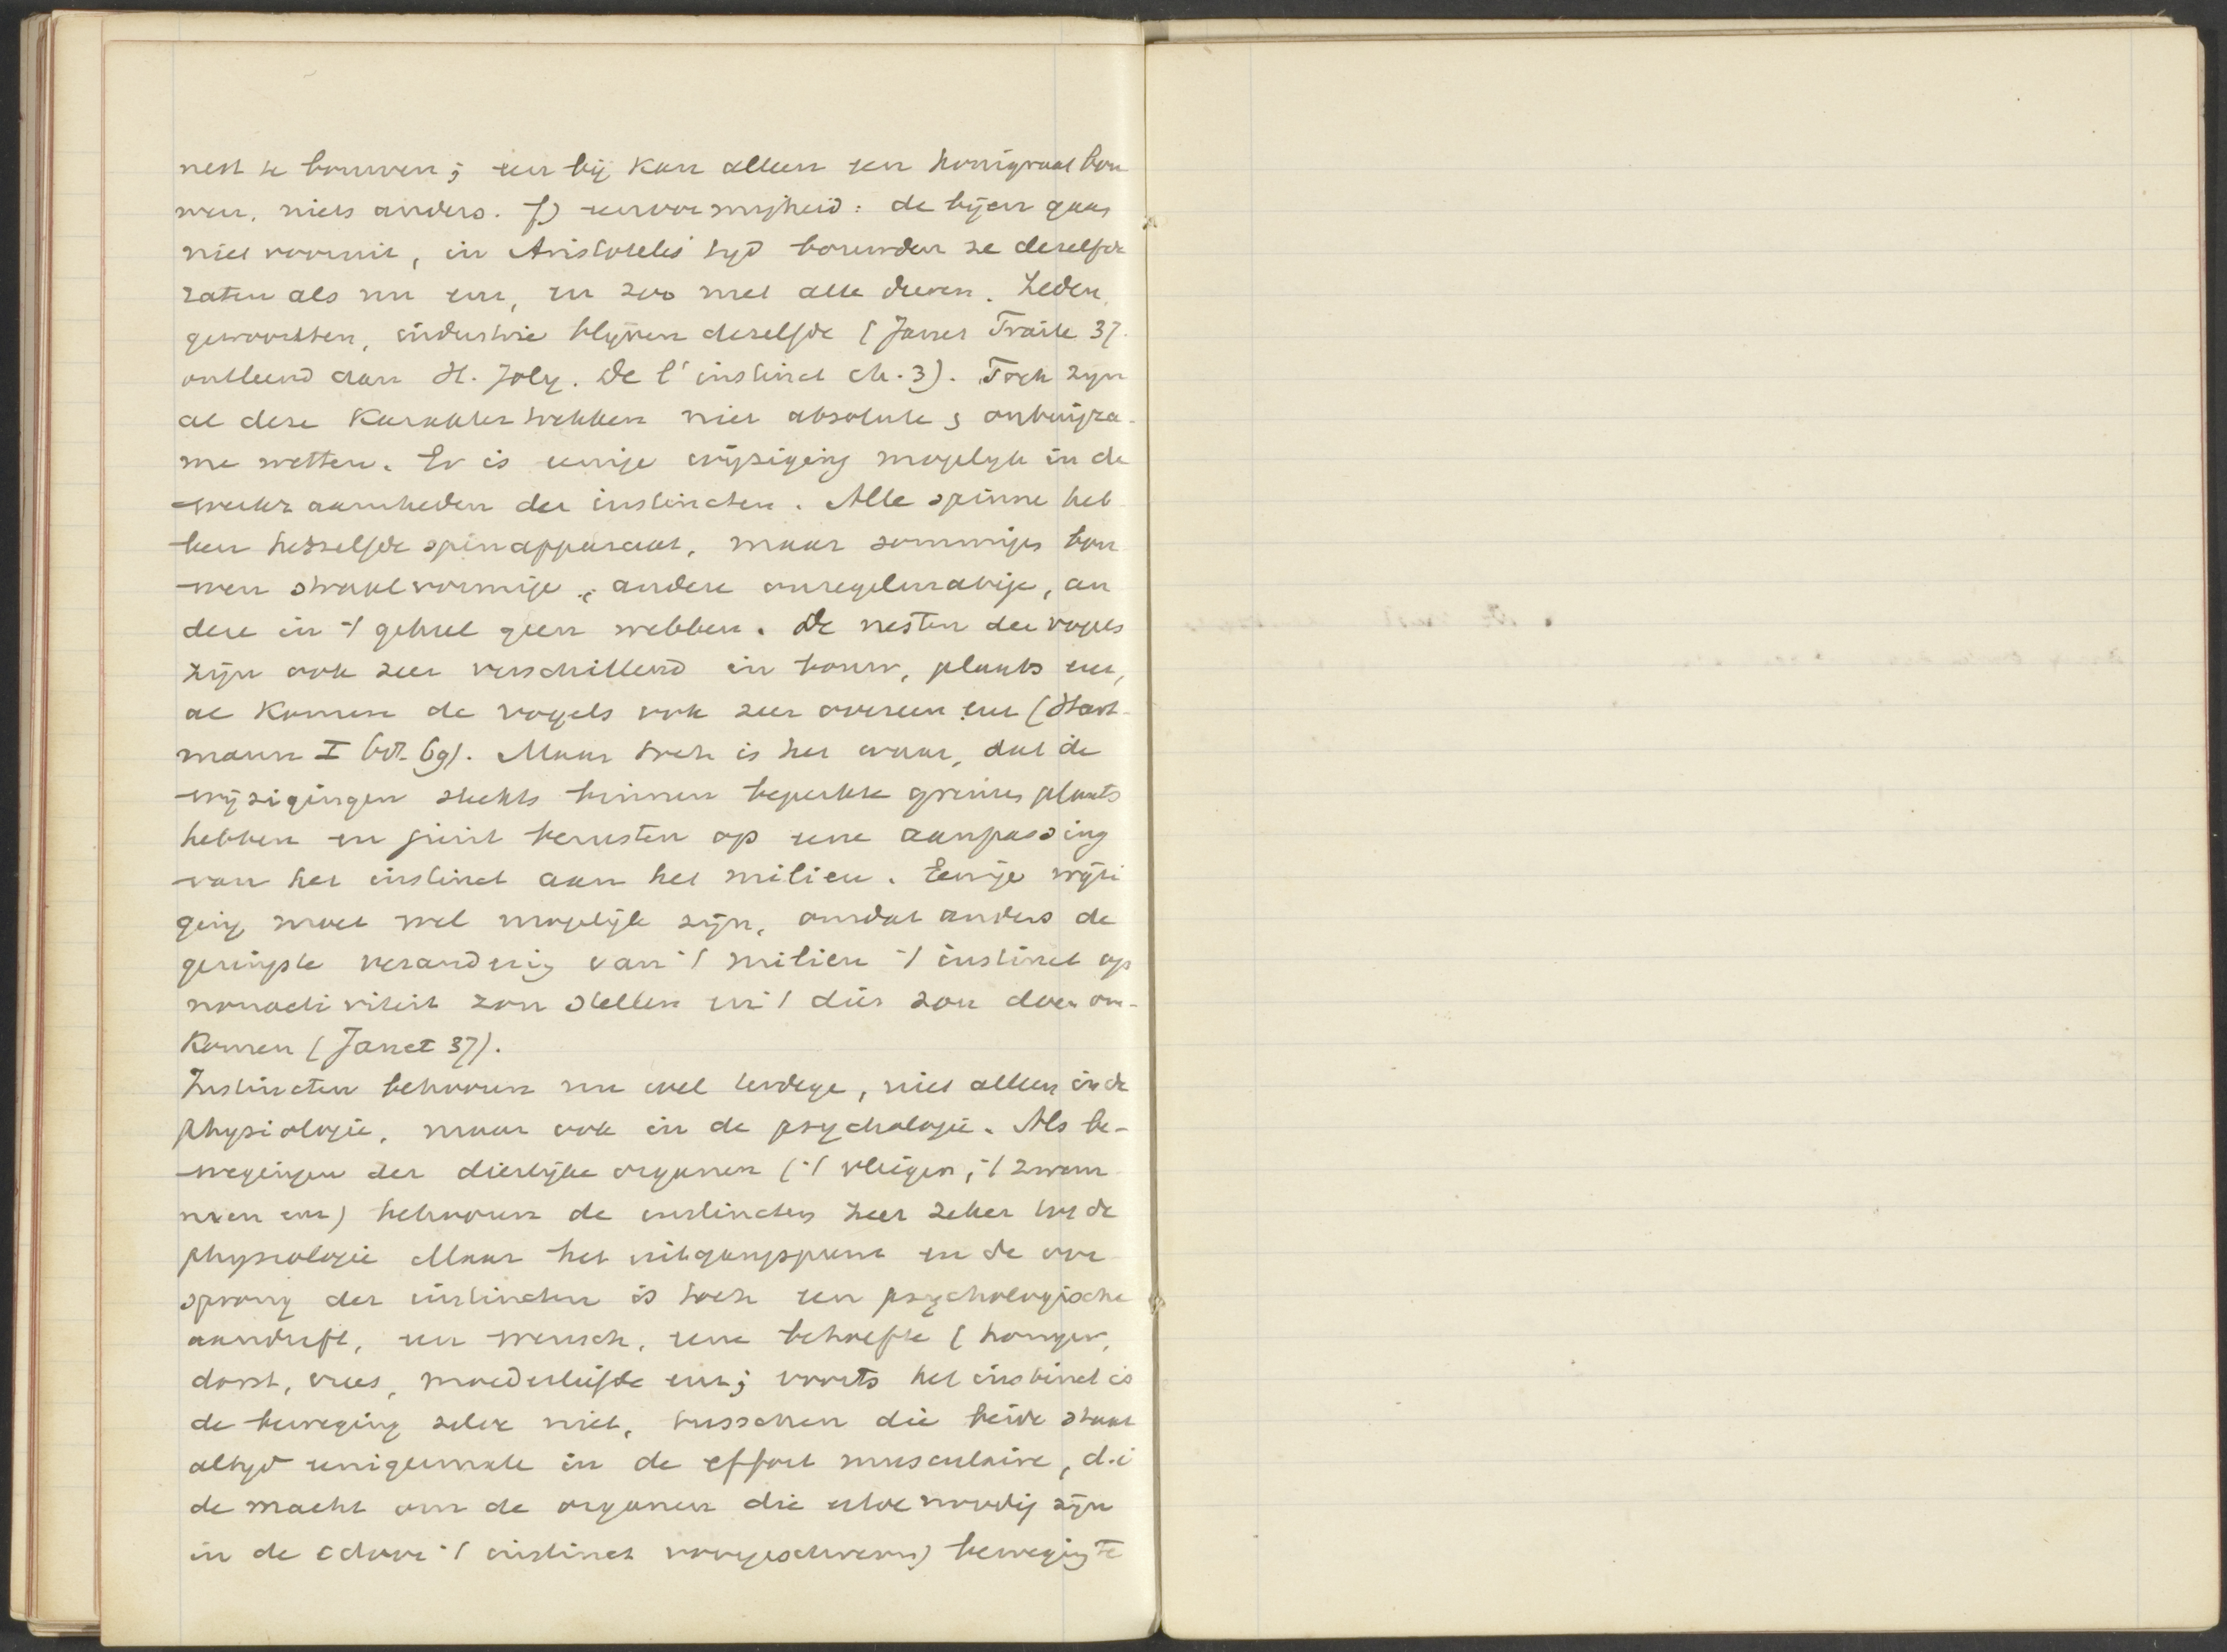 nest te bouwen; een bij kan alleen een honigraat bou
wen, niets anders. f) eenvormigheid: de bijen gaan
niet vooruit, in Aristoteles' tyd bouwden ze dezelfde
raten als nu enz, en zoo met alle dieren. Zeden,
gewoonten, industrie blyven dezelfde (Janet Traité 37.
ontleend aan H. Joly. De l'instinct ch. 3). Toch zyn
al deze karaktertrekken niet absolute & onbuigza-
me wetten. Er is eenige wijziging mogelyk in de
werkzaamheden der instincten. Alle spinne heb
ben hetzelfde spinapparaat, maar sommiges bou
wen straalvormige, andere onregelmatige, an
dere in 't geheel geen webben. De nesten der vogels
zijn ook zeer verschillend in bouw, plaats enz,
al komen de vogels ook zeer overeen enz (Hart-
mann I 68-69). Maar toch is het waar, dat de
wijzigingen slechts binnen beperkte grenzen plaats
hebben en juist berusten op eene aanpassing
van het instinct aan het milieu. Eenige wijzi
ging moet wel mogelijk zijn, omdat anders de
geringste verandering van 't milieu 't instinct op
nonactiviteit zou stellen en 't dier zou doen om-
komen (Janet 37).
Instincten behooren nu wel terdege, niet alleen in de
physiologie, maar ook in de psychologie. Als be-
wegingen der dierlijke organen ('t vliegen, 't zwem
men enz) behooren de instincten zeer zeker by de
physiologie Maar het uitgangspunt en de oor
sprong der instincten is toch een psychologische
aandrift, een wensch, eene behoefte (honger,
dorst, vrees, moederliefde enz; voorts het instinct is
de beweging zelve niet, tusschen die beide staat
altyd eenigermate in de effort musculaire, d.i
de macht om de organen die ertoe noodig zijn
in de (door 't instinct voorgeschreven) beweging te